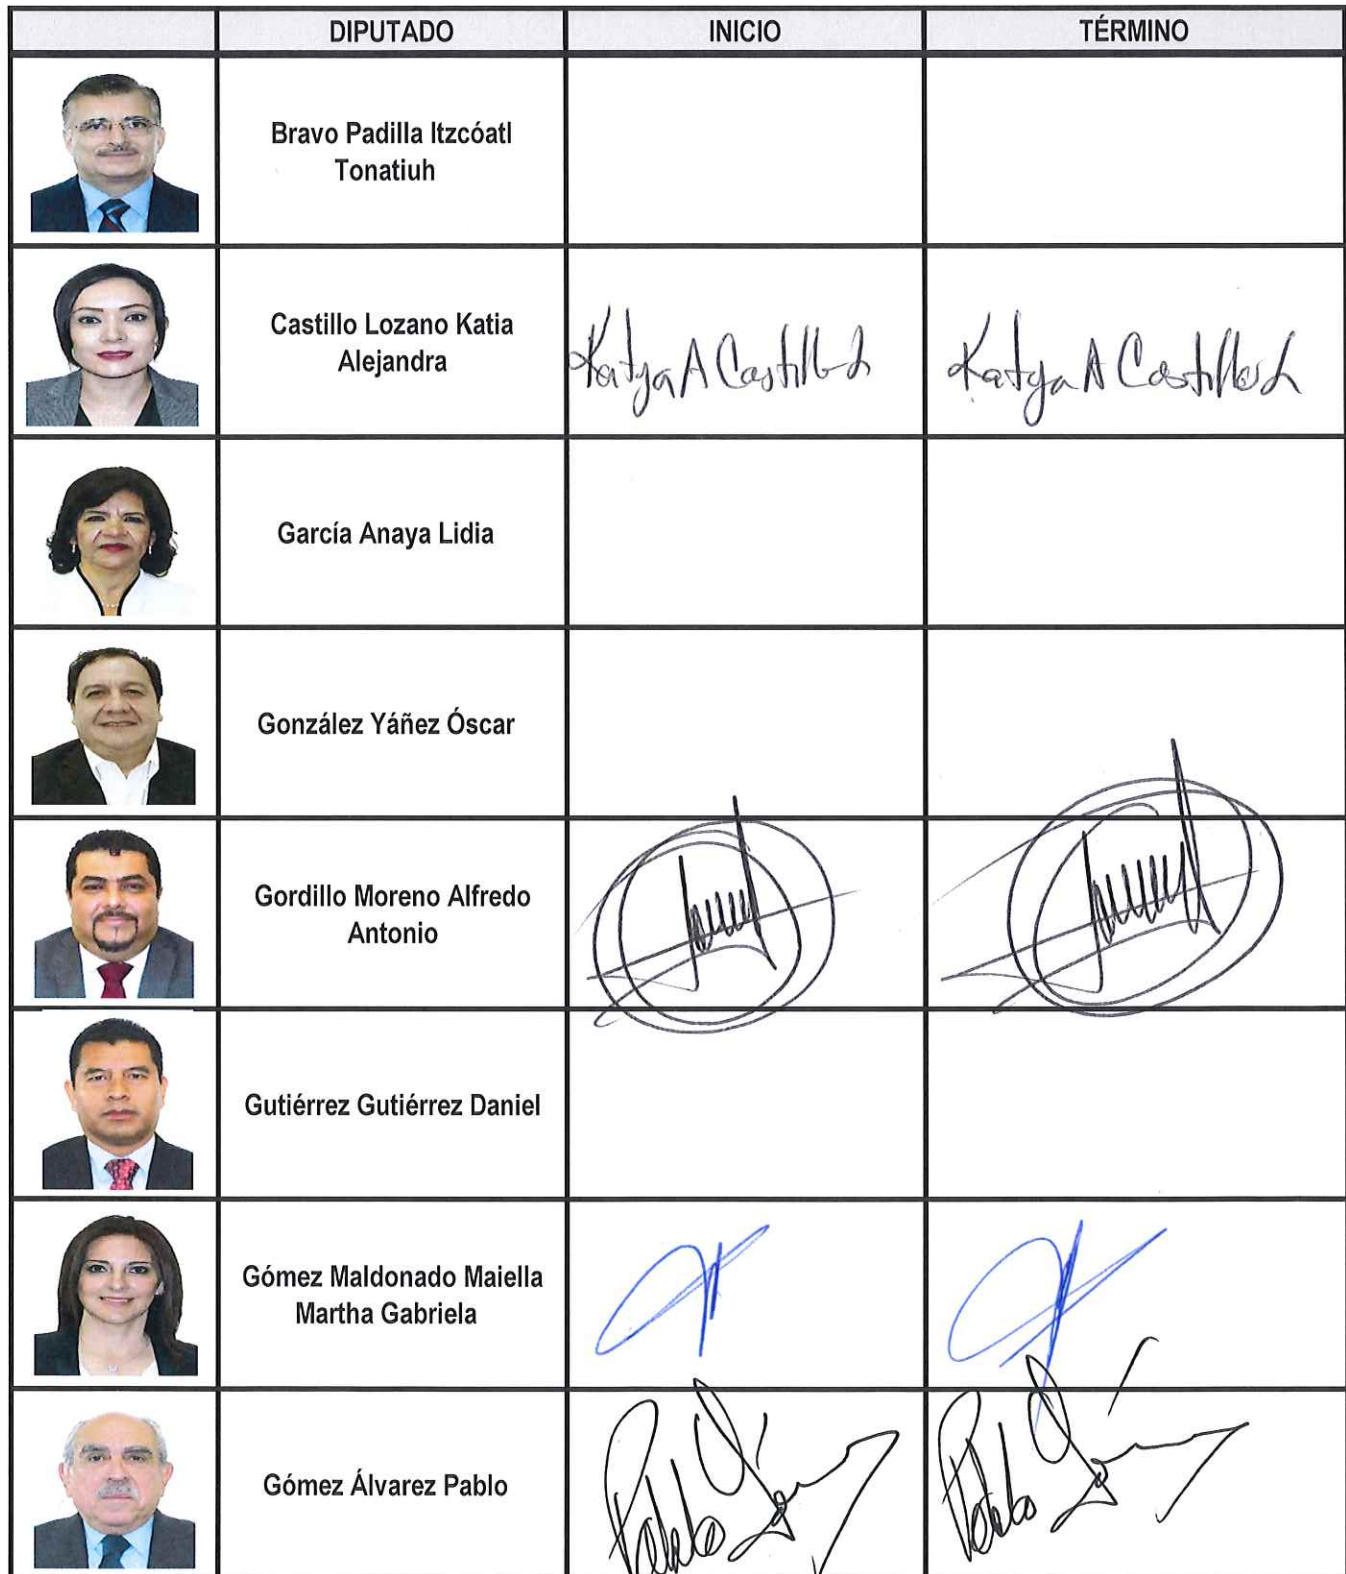 DIPUTADO INICIO TÉRMINO
Bravo Padilla Itzcóatl
Tonatiuh
Castillo Lozano Katia
Alejandra
Katya A Castillo L Katya A Castillo L
García Anaya Lidia
González Yáñez Óscar
Gordillo Moreno Alfredo
Antonio
Gutiérrez Gutiérrez Daniel
Gómez Maldonado Maiella
Martha Gabriela
Gómez Álvarez Pablo
Pablo Gómez Pablo Gómez